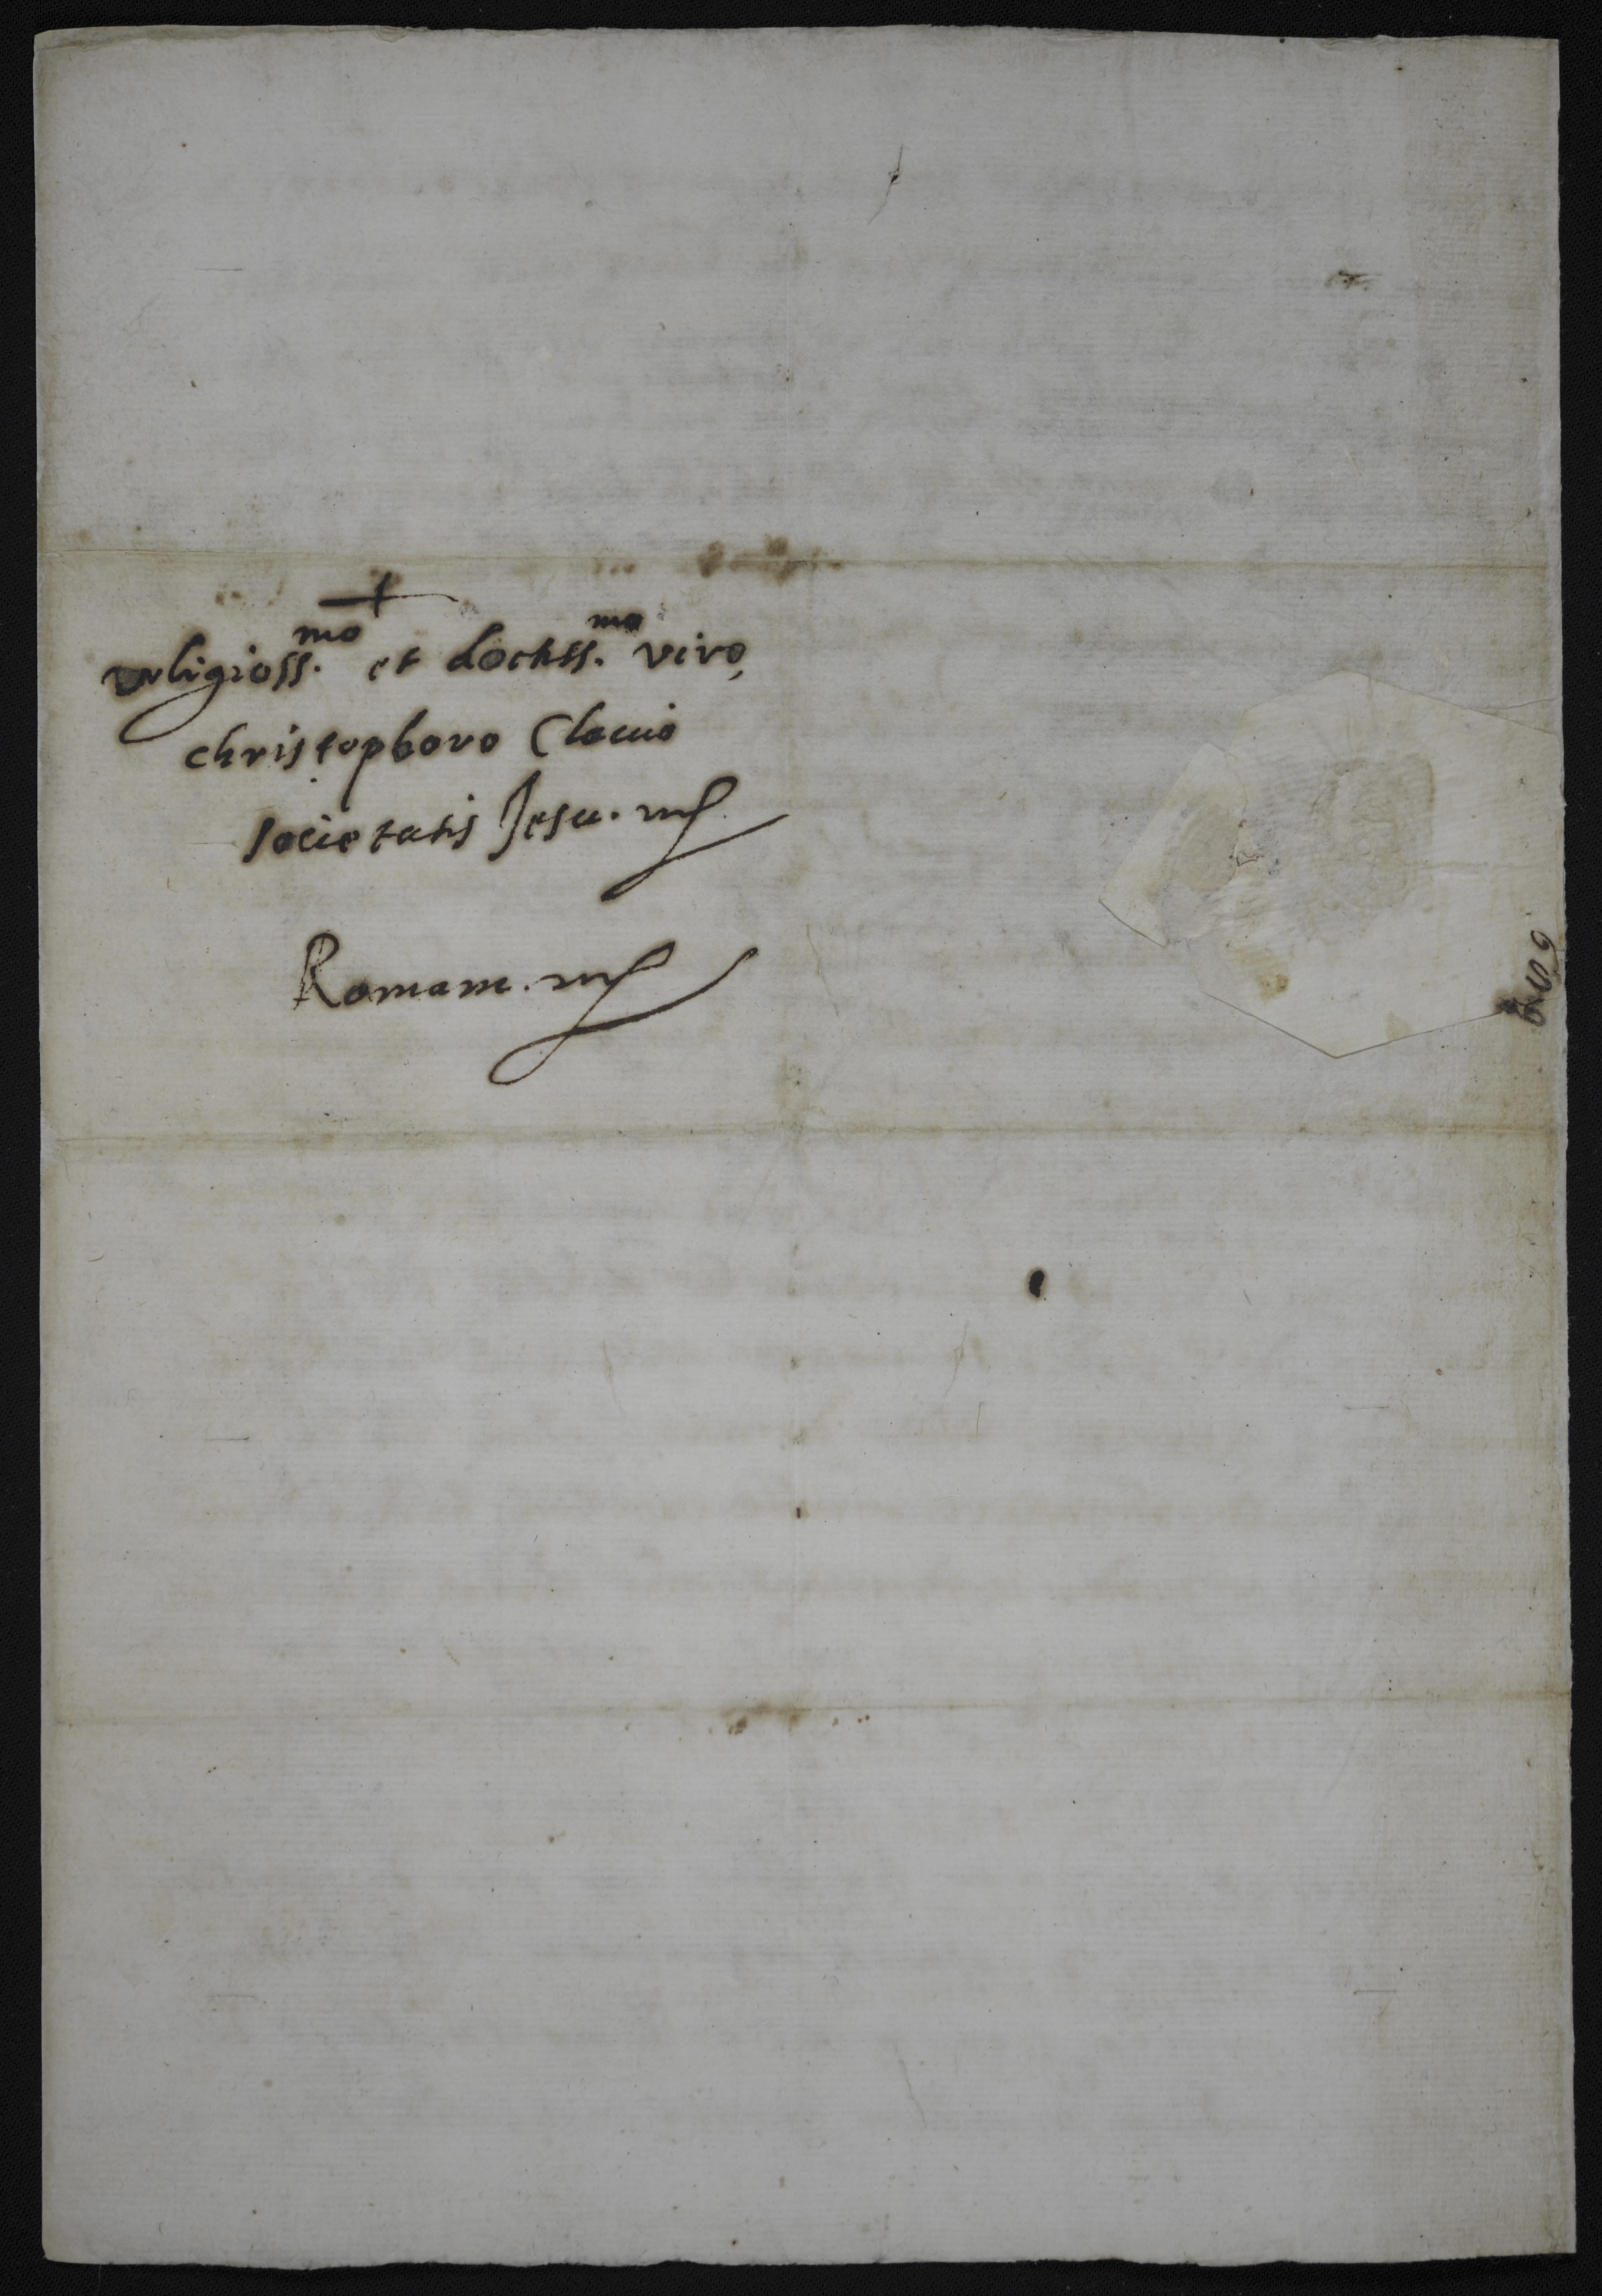 +
religioss.mo et doctiss.mo viro,
christophoro Clauio
societatis Jesu.
Romam.